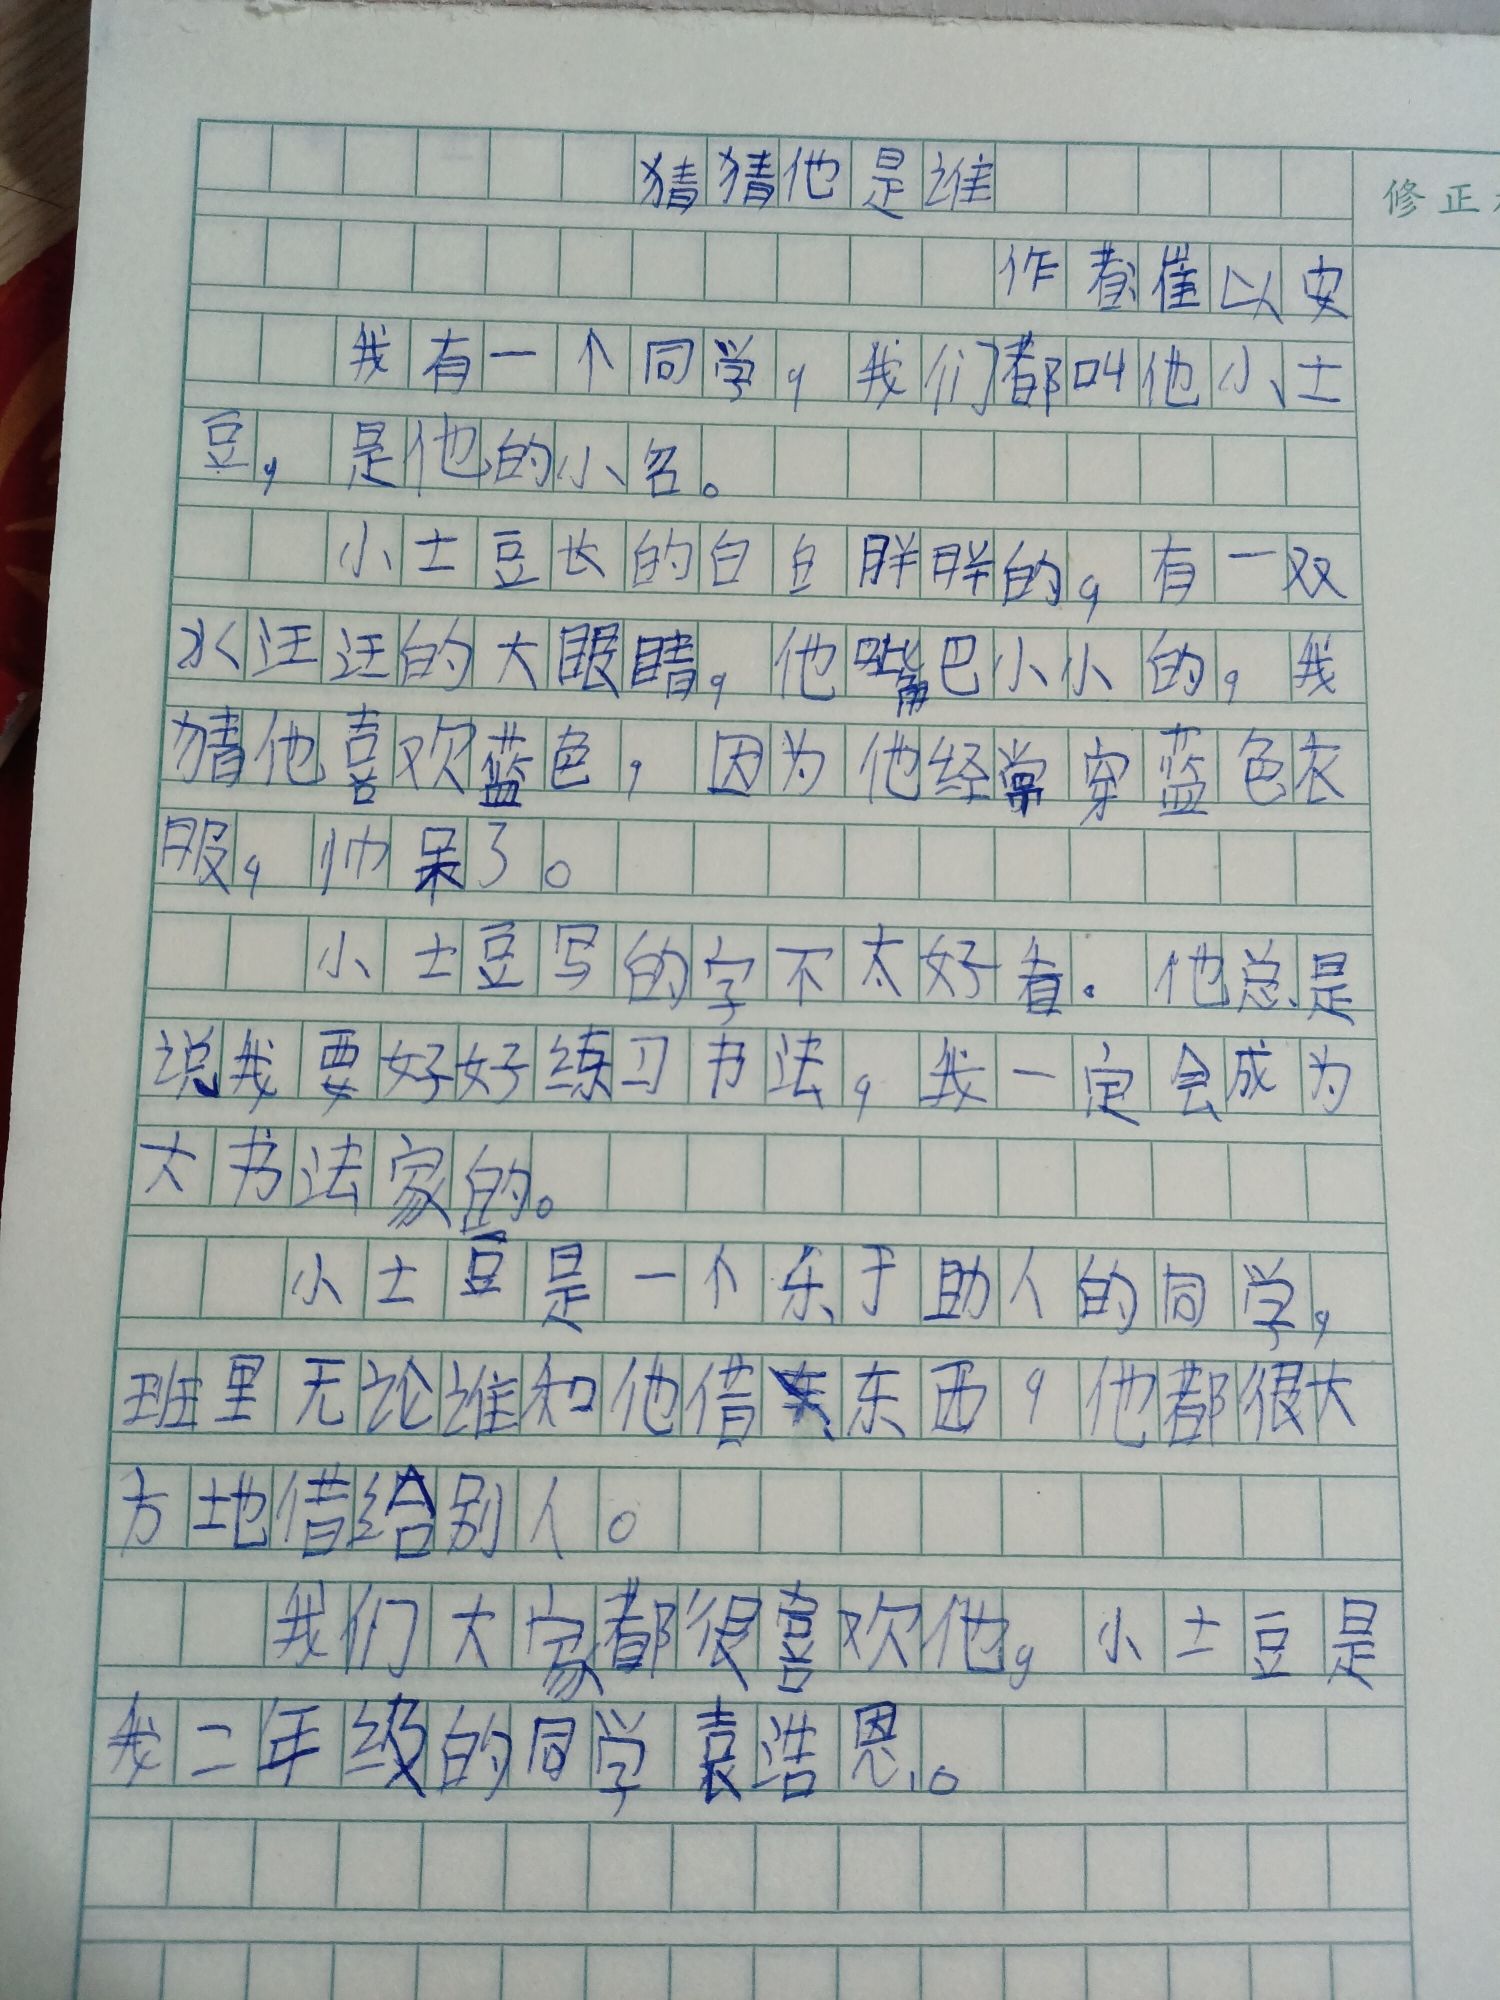 猜猜他是谁
修正
作者崔以安
我有一个同学，我们都叫他小土
豆，是他的小名。
小土豆长的白白胖胖的，有一双
水汪汪的大眼睛，他嘴巴小小的，我
猜他喜欢蓝色，因为他经常穿蓝色衣
服，帅呆了。
小土豆写的字不太好看．他总是
说我要好好练习书法，我一定会成为
大书法家的。
小土豆是一个乐于助人的同学，
班里无论谁和他借东西，他都很大
方地借给别人。
我们大家都很喜欢他，小土豆是
我二年级的同学袁浩恩。